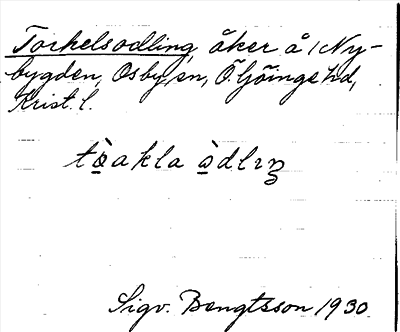 Torkelsodling, åker å Ny-
bygden, Osby sn, Ö. Göinge hd,
Krist. l.
tò̱akla ò̱dlıŋ
Sigv. Bengtsson 1930.